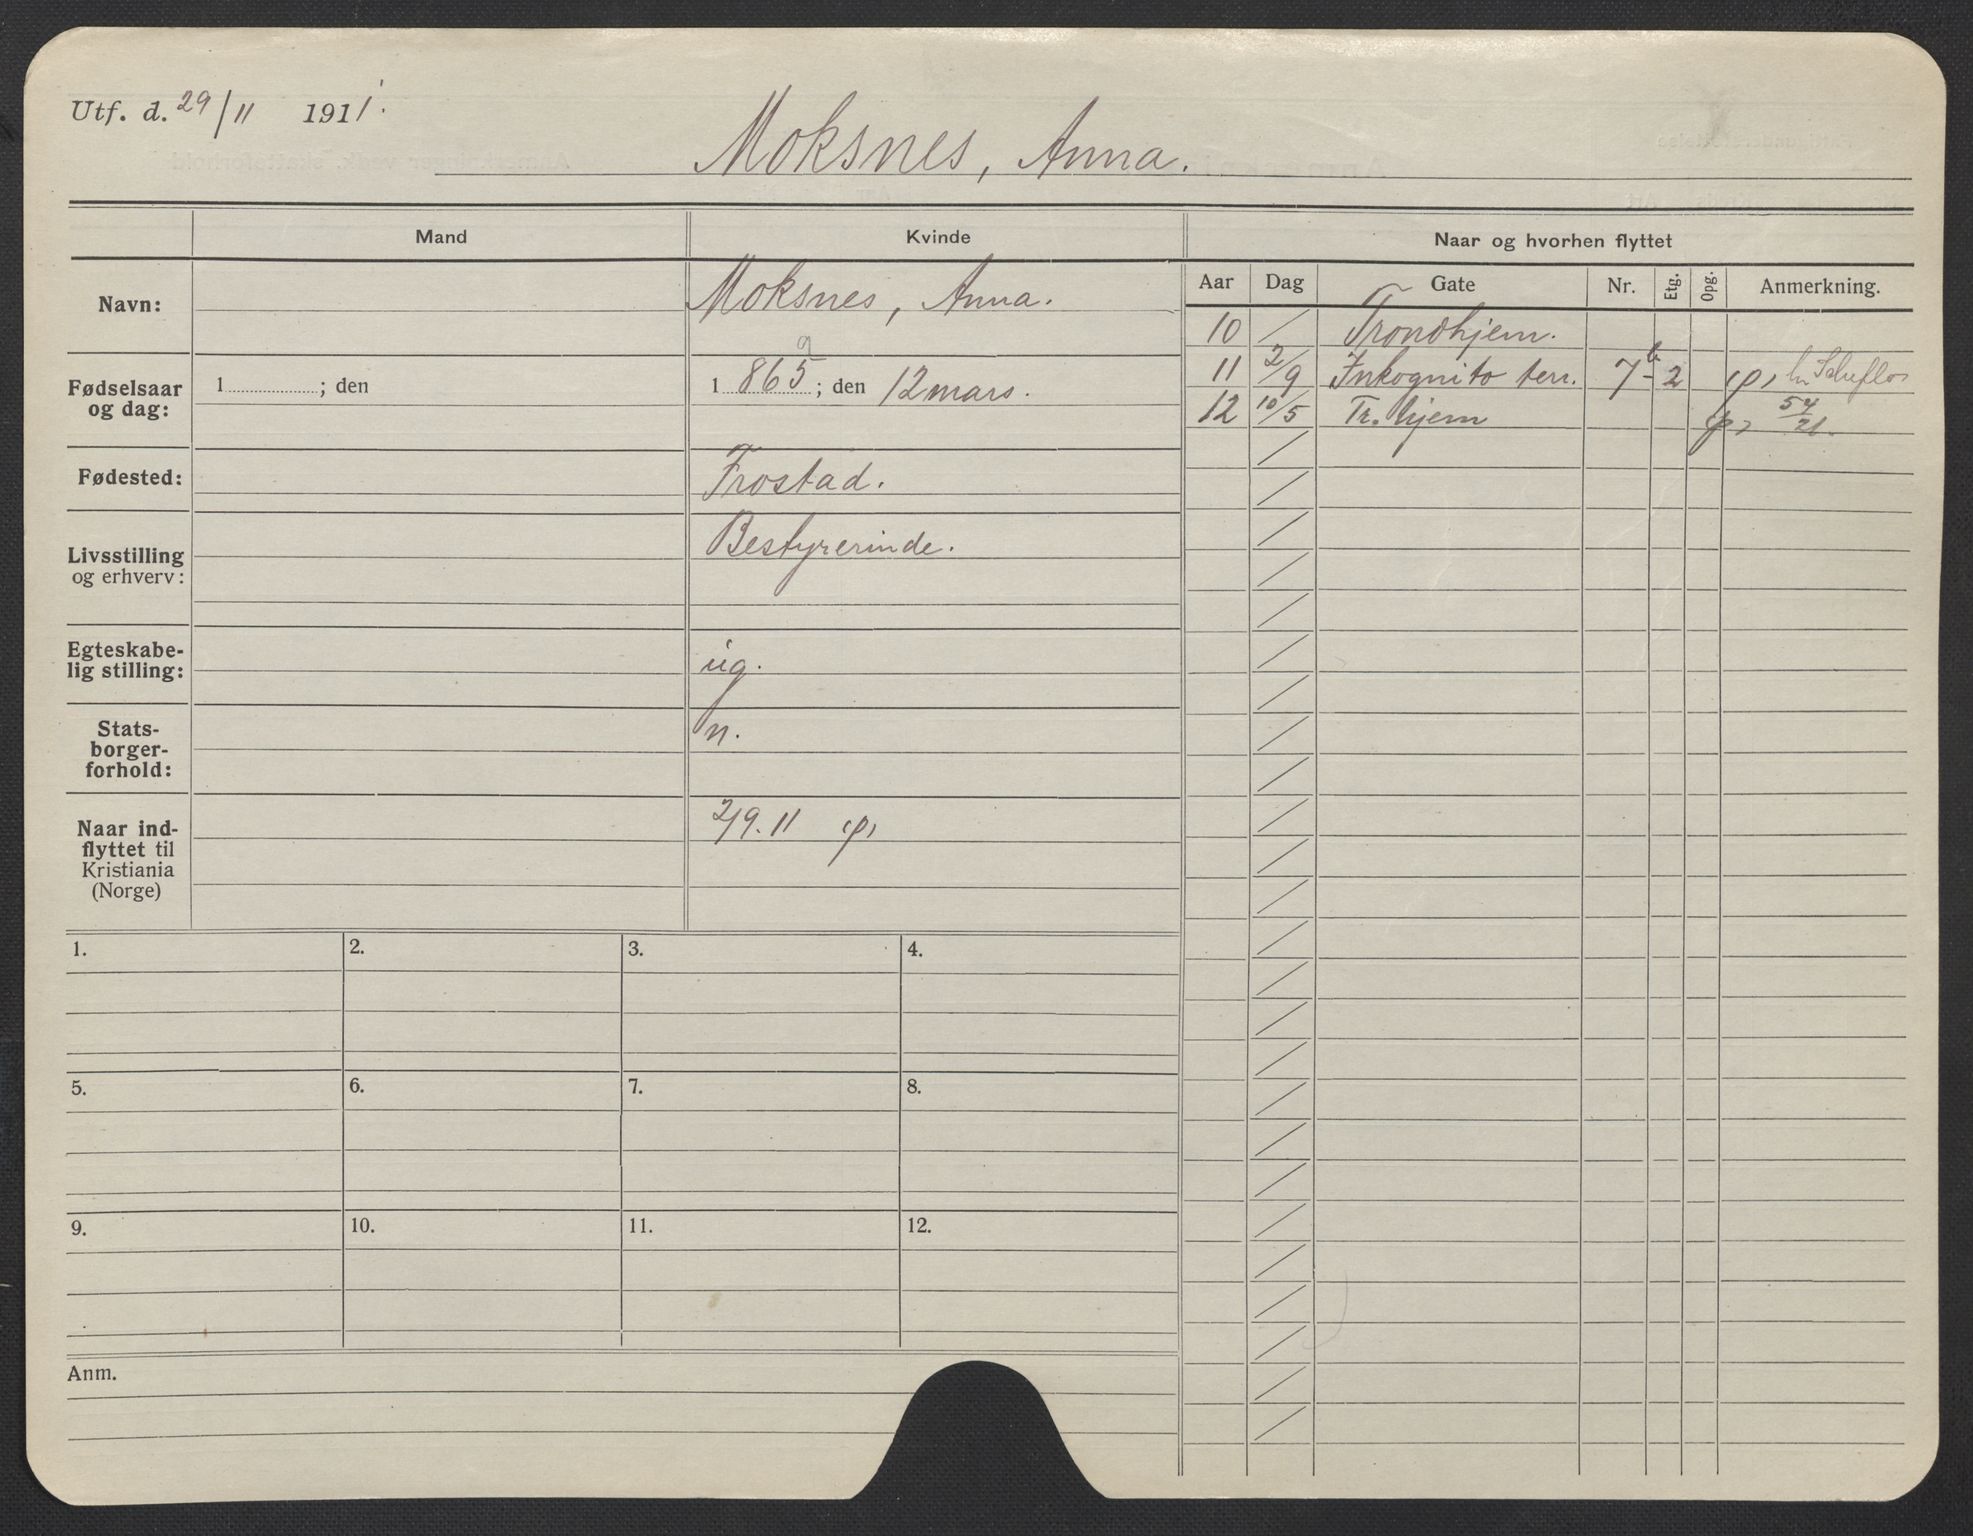 Utf. d. 29/11 1911.
Moksnes, Anna.
Mand
Kvinde
Naar og hvorhen flyttet
Navn:
Moksnes, Anna.
Fødselsaar og dag:
1 ; den
9
1 865 ; den 12 mars.
Fødested:
Frostad.
Livsstilling og erhverv:
Bestyrerinde.
Egteskabe-
lig stilling:
ug.
Stats-
borger-
forhold:
n.
Naar ind-
flyttet til
Kristiania
(Norge)
2/9. 11
Aar Dag Gate Nr. Etg. Opg. Anmerkning.
10 / Trondhjem.
11 2/9 Inkognito terr. 7b - 2
12 10/5 Tr.hjem 54/21.
1. 2. 3. 4.
5. 6. 7. 8.
9. 10. 11. 12.
Anm.